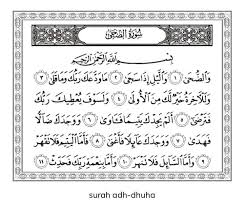 سُورَةُ الضُّحَىٰ
بِسْمِ اللَّهِ الرَّحْمَٰنِ الرَّحِيمِ
وَالضُّحَىٰ ١ وَاللَّيْلِ إِذَا سَجَىٰ ٢ مَا وَدَّعَكَ رَبُّكَ وَمَا قَلَىٰ ٣
وَلَلْآخِرَةُ خَيْرٌ لَّكَ مِنَ الْأُولَىٰ ٤ وَلَسَوْفَ يُعْطِيكَ رَبُّكَ
فَتَرْضَىٰ ٥ أَلَمْ يَجِدْكَ يَتِيمًا فَآوَىٰ ٦ وَوَجَدَكَ ضَالًّا
فَهَدَىٰ ٧ وَوَجَدَكَ عَائِلًا فَأَغْنَىٰ ٨ فَأَمَّا الْيَتِيمَ فَلَا تَقْهَرْ
٩ وَأَمَّا السَّائِلَ فَلَا تَنْهَرْ ١٠ وَأَمَّا بِنِعْمَةِ رَبِّكَ فَحَدِّثْ ١١
surah adh-dhuha